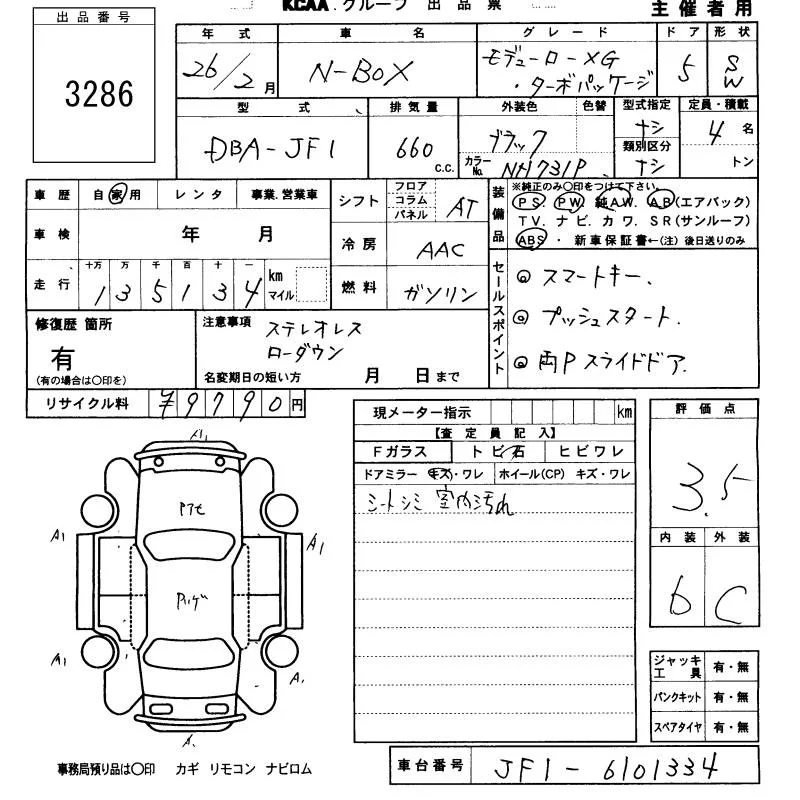 KCAA.グループ 出品票
主催者用
出品番号
3286
年式 車名 グレード ドア 形状
26/2月 N-BOX モデューロ-XG ・ターボパッケージ 5 SW
型式 排気量 外装色 色替 型式指定 定員・積載
DBA-JF1 660 c.c. ブラック カラーNo. NH731P ナシ 類別区分 ナシ 4名 トン
車歴 自家用 レンタ 事業.営業車
車検 年 月
走行 十万 万 千 百 十 一
135134 km マイル
シフト フロア コラム パネル AT
冷房 AAC
燃料 ガソリン
装備品 ※純正のみ○印をつけて下さい。
PS PW 純AW. AB(エアバック)
TV. ナビ. カワ. SR(サンルーフ)
ABS ・ 新車保証書←(注) 後日送りのみ
セールスポイント
◎ スマートキー.
◎ プッシュスタート.
◎ 両Pスライドドア.
修復歴 箇所
有
(有の場合は○印を)
注意事項 ステレオレス
ローダウン
名変期日の短い方 月 日まで
リサイクル料 ¥9790円
現メーター指示 km
【査定員記入】
Fガラス トビ石 ヒビワレ
ドアミラー キズ・ワレ ホイール(CP) キズ・ワレ
シートシミ 室内汚れ
評価点
3.5
内装 外装
b C
ジャッキ工具 有・無
パンクキット 有・無
スペアタイヤ 有・無
A1
A1
A1
A1
A1
A1
事務局預り品は○印 カギ リモコン ナビロム
車台番号 JF1-6101334